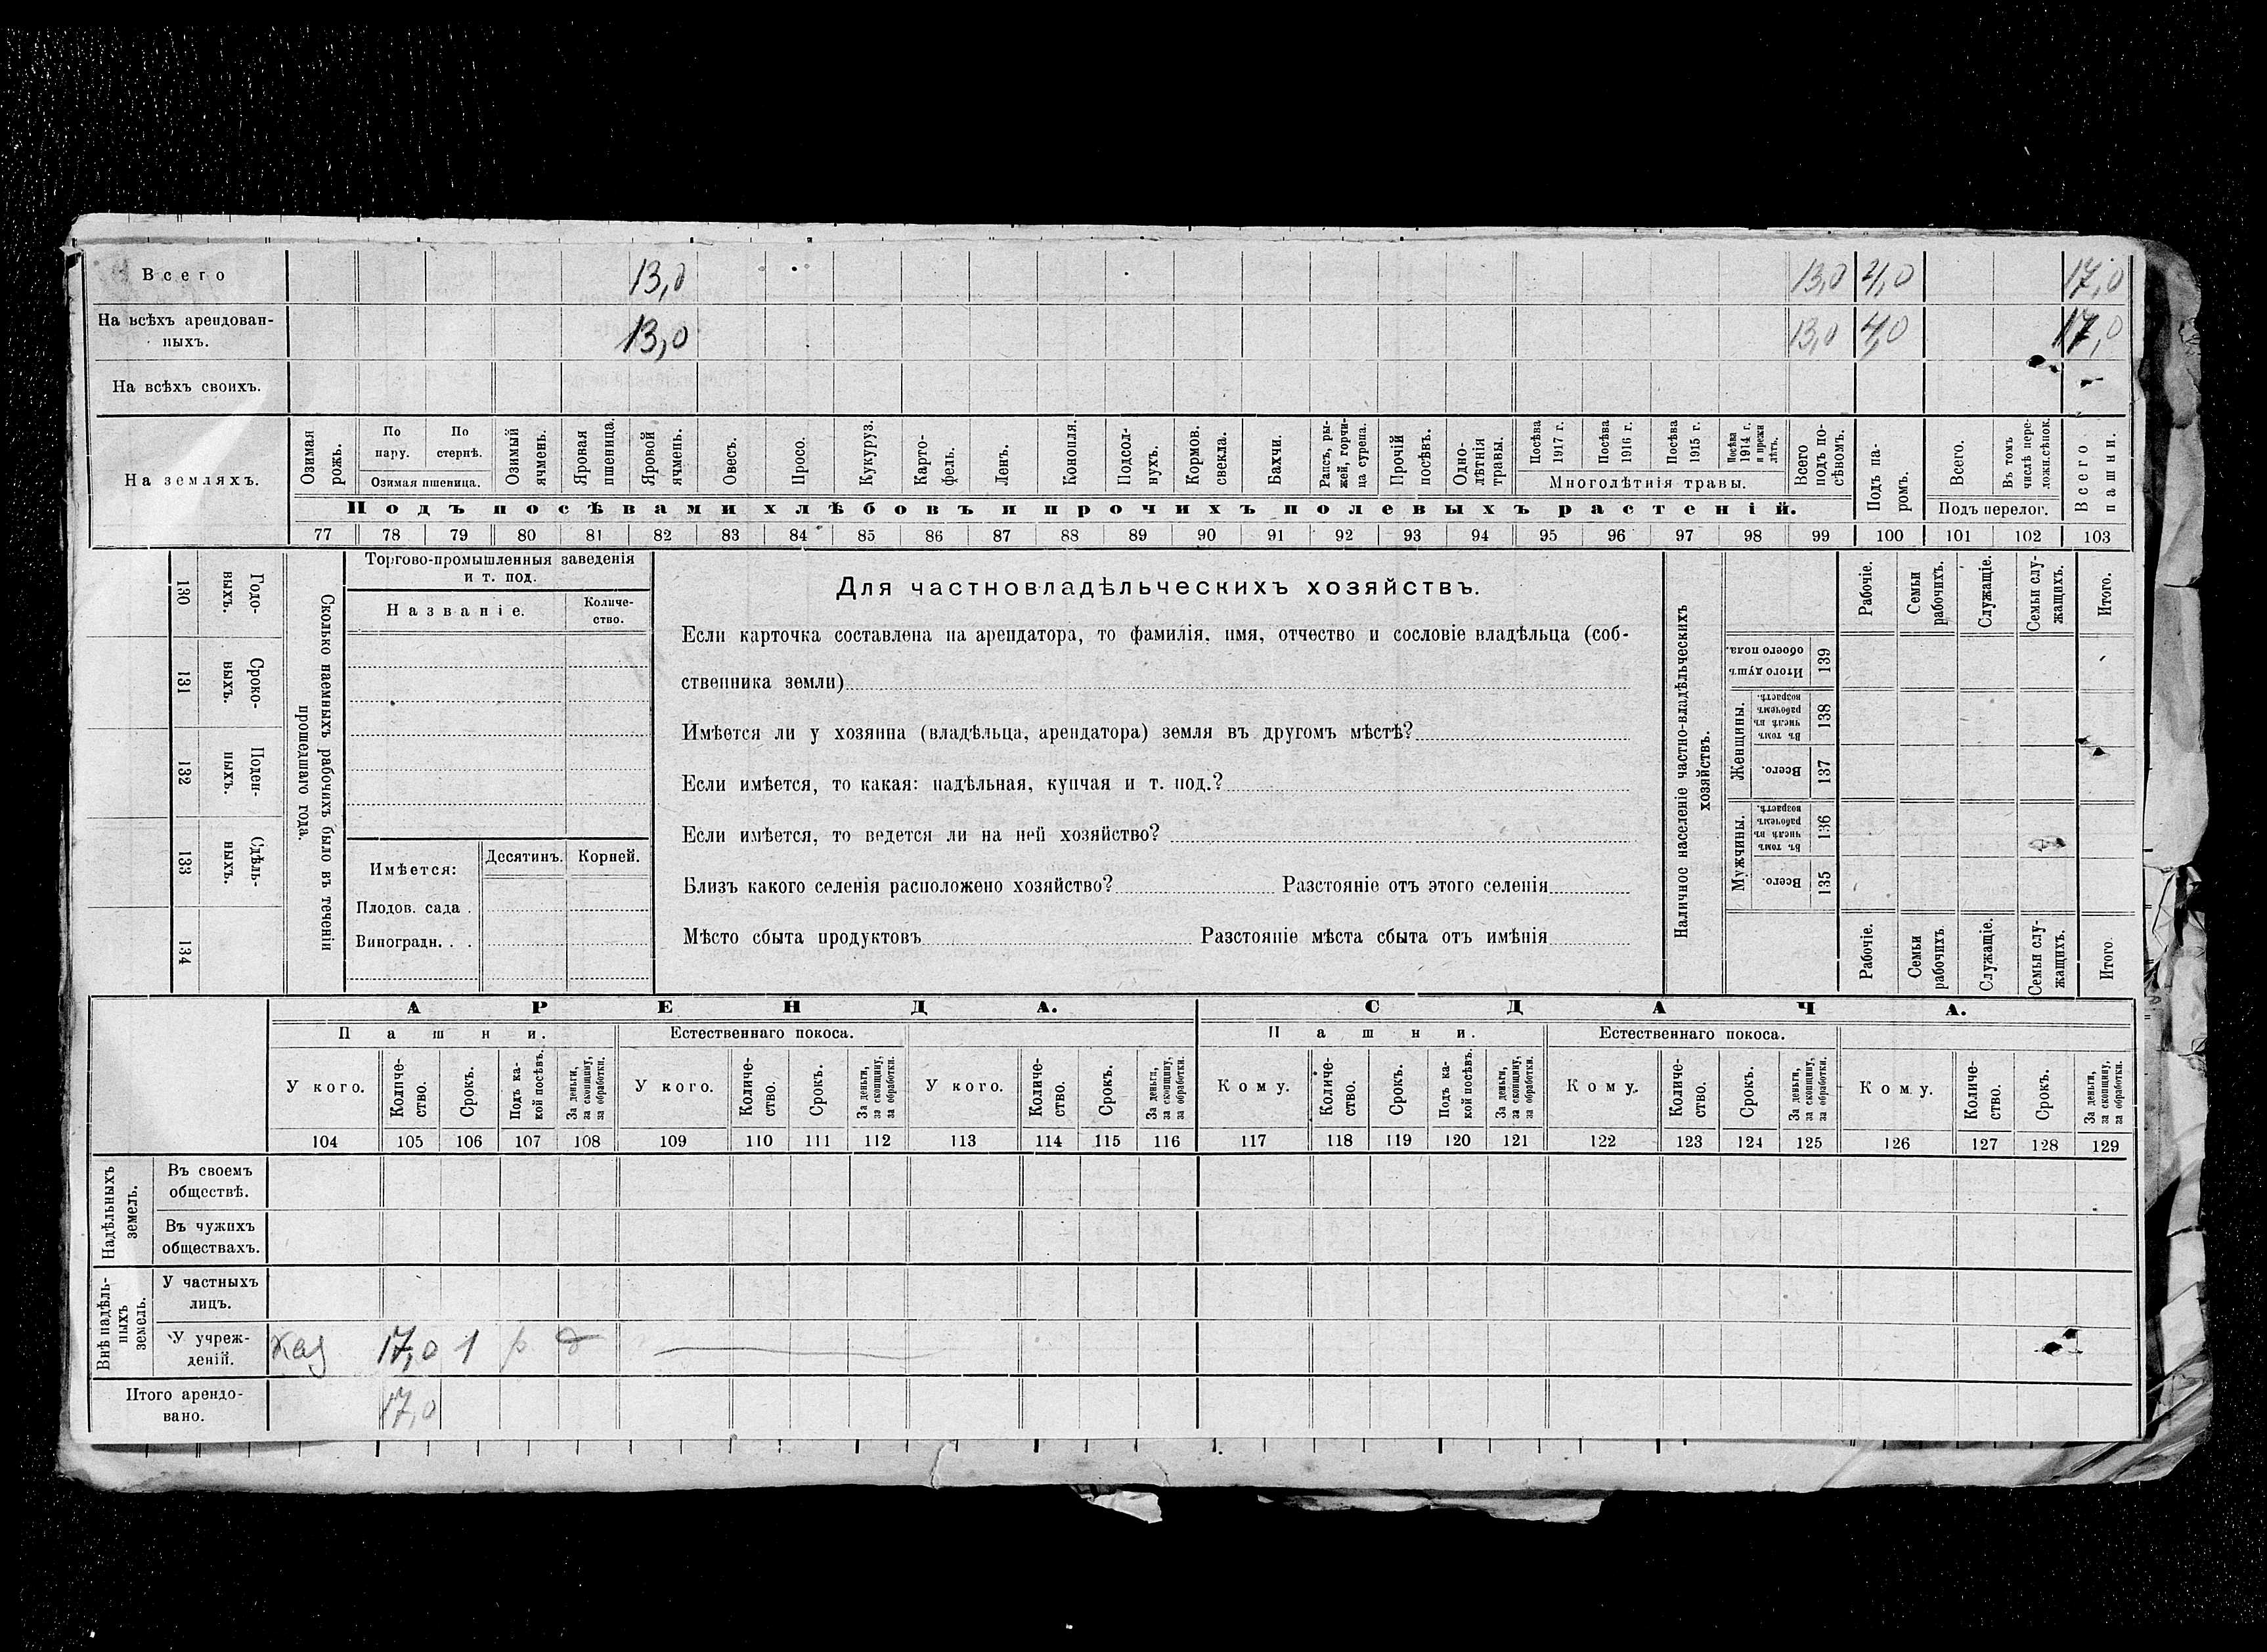 Всего 13,0 13,0 4,0 17,0
На всѣхъ арендован-
ныхъ. 13,0 13,0 4,0 17,0
На всѣхъ своихъ.
На земляхъ.
Озимая рожь.
По пару.
По стернѣ.
Озимая пшеница.
Озимый ячмень.
Яровая пшеница.
Яровой ячмень.
Овесъ.
Просо.
Кукуруз.
Карто-
фель.
Ленъ.
Конопля.
Подсол-
нухъ.
Кормов.
свекла.
Бахчи.
Рапсъ, ры-
жей, горчи-
ца сурепа.
Прочій
посѣвъ.
Одно-
лѣтнія
травы.
Посѣва
1917 г.
Посѣва
1916 г.
Посѣва
1915 г.
Посѣва
1914 г.
и прежн
лѣтъ.
Многолѣтнія травы.
Всего
подъ по-
сѣвомъ.
Подъ па-
ромъ.
Всего.
Въ томъ
числѣ пере-
ложн.сѣнок.
Подъ перелог.
Всего
пашни.
Подъ посѣвами хлѣбовъ и прочихъ полевыхъ растеній.
77 78 79 80 81 82 83 84 85 86 87 88 89 90 91 92 93 94 95 96 97 98 99 100 101 102 103
130 Годо-
выхъ.
131 Сроко-
выхъ.
132 Поден-
ныхъ.
133 Сдѣль-
ныхъ.
134
Сколько наемныхъ рабочихъ было въ теченіи
прошедшаго года.
Торгово-промышленныя заведенія
и т. под.
Названіе.
Количе-
ство.
Имѣется:
Десятинъ. Корней.
Плодов. сада .
Виноградн. . .
Для частновладѣльческихъ хозяйствъ.
Если карточка составлена на арендатора, то фамилія, имя, отчество и сословіе владѣльца (соб-
ственника земли)
Имѣется ли у хозяина (владѣльца, арендатора) земля въ другомъ мѣстѣ?
Если имѣется, то какая: надѣльная, купчая и т. под.?
Если имѣется, то ведется ли на ней хозяйство?
Близъ какого селенія расположено хозяйство? Разстояніе отъ этого селенія
Мѣсто сбыта продуктовъ Разстояніе мѣста сбыта отъ имѣнія
Наличное населеніе частно-владѣльческихъ
хозяйствъ.
Рабочіе.
Семьи
рабочихъ.
Служащіе.
Семьи слу-
жащихъ.
Итого.
Итого душъ
обоего пола.
139
Женщины.
Въ томъ
числѣ въ
рабочемъ
возрастѣ.
138
Всего.
137
Мужчины.
Въ томъ
числѣ въ
рабочемъ
возрастѣ.
136
Всего.
135
Рабочіе.
Семьи
рабочихъ.
Служащіе.
Семьи слу-
жащихъ.
Итого.
АРЕНДА. СДАЧА.
Пашни. Естественнаго покоса. Пашни. Естественнаго покоса.
У кого.
Количе-
ство.
Срокъ.
Подъ ка-
кой посѣвъ.
За деньги,
за скопщину,
за обработки.
У кого.
Количе-
ство.
Срокъ.
За деньги,
за скопщину,
за обработки.
У кого.
Количе-
ство.
Срокъ.
За деньги,
за скопщину,
за обработки.
Кому.
Количе-
ство.
Срокъ.
Подъ ка-
кой посѣвъ.
За деньги,
за скопщину,
за обработки.
Кому.
Количе-
ство.
Срокъ.
За деньги,
за скопщину,
за обработки.
Кому.
Количе-
ство.
Срокъ.
За деньги,
за скопщину,
за обработки.
104 105 106 107 108 109 110 111 112 113 114 115 116 117 118 119 120 121 122 123 124 125 126 127 128 129
Надѣльныхъ
земель.
Въ своемъ
обществѣ.
Въ чужихъ
обществахъ.
Внѣ надѣль-
ныхъ
земель.
У частныхъ
лицъ.
У учреж-
деній. каз 17,0 1 р д
Итого арендо-
вано. 17,0